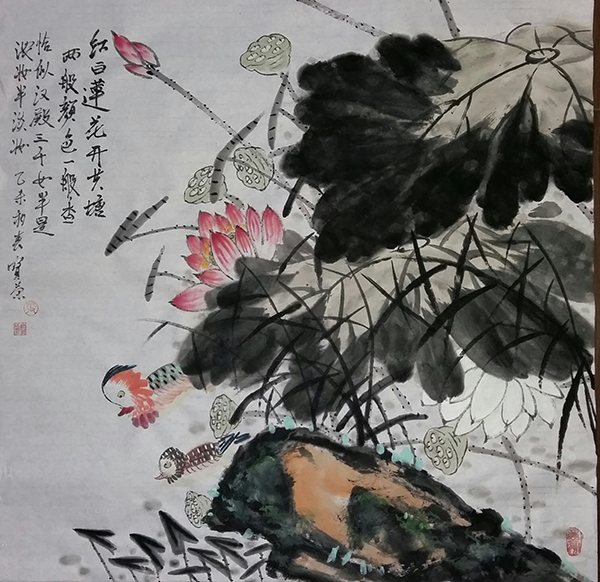 红白莲花开共塘
两般颜色一般香
恰似汉殿三千女半是
浓妆半淡妆 乙未初春 贤荣